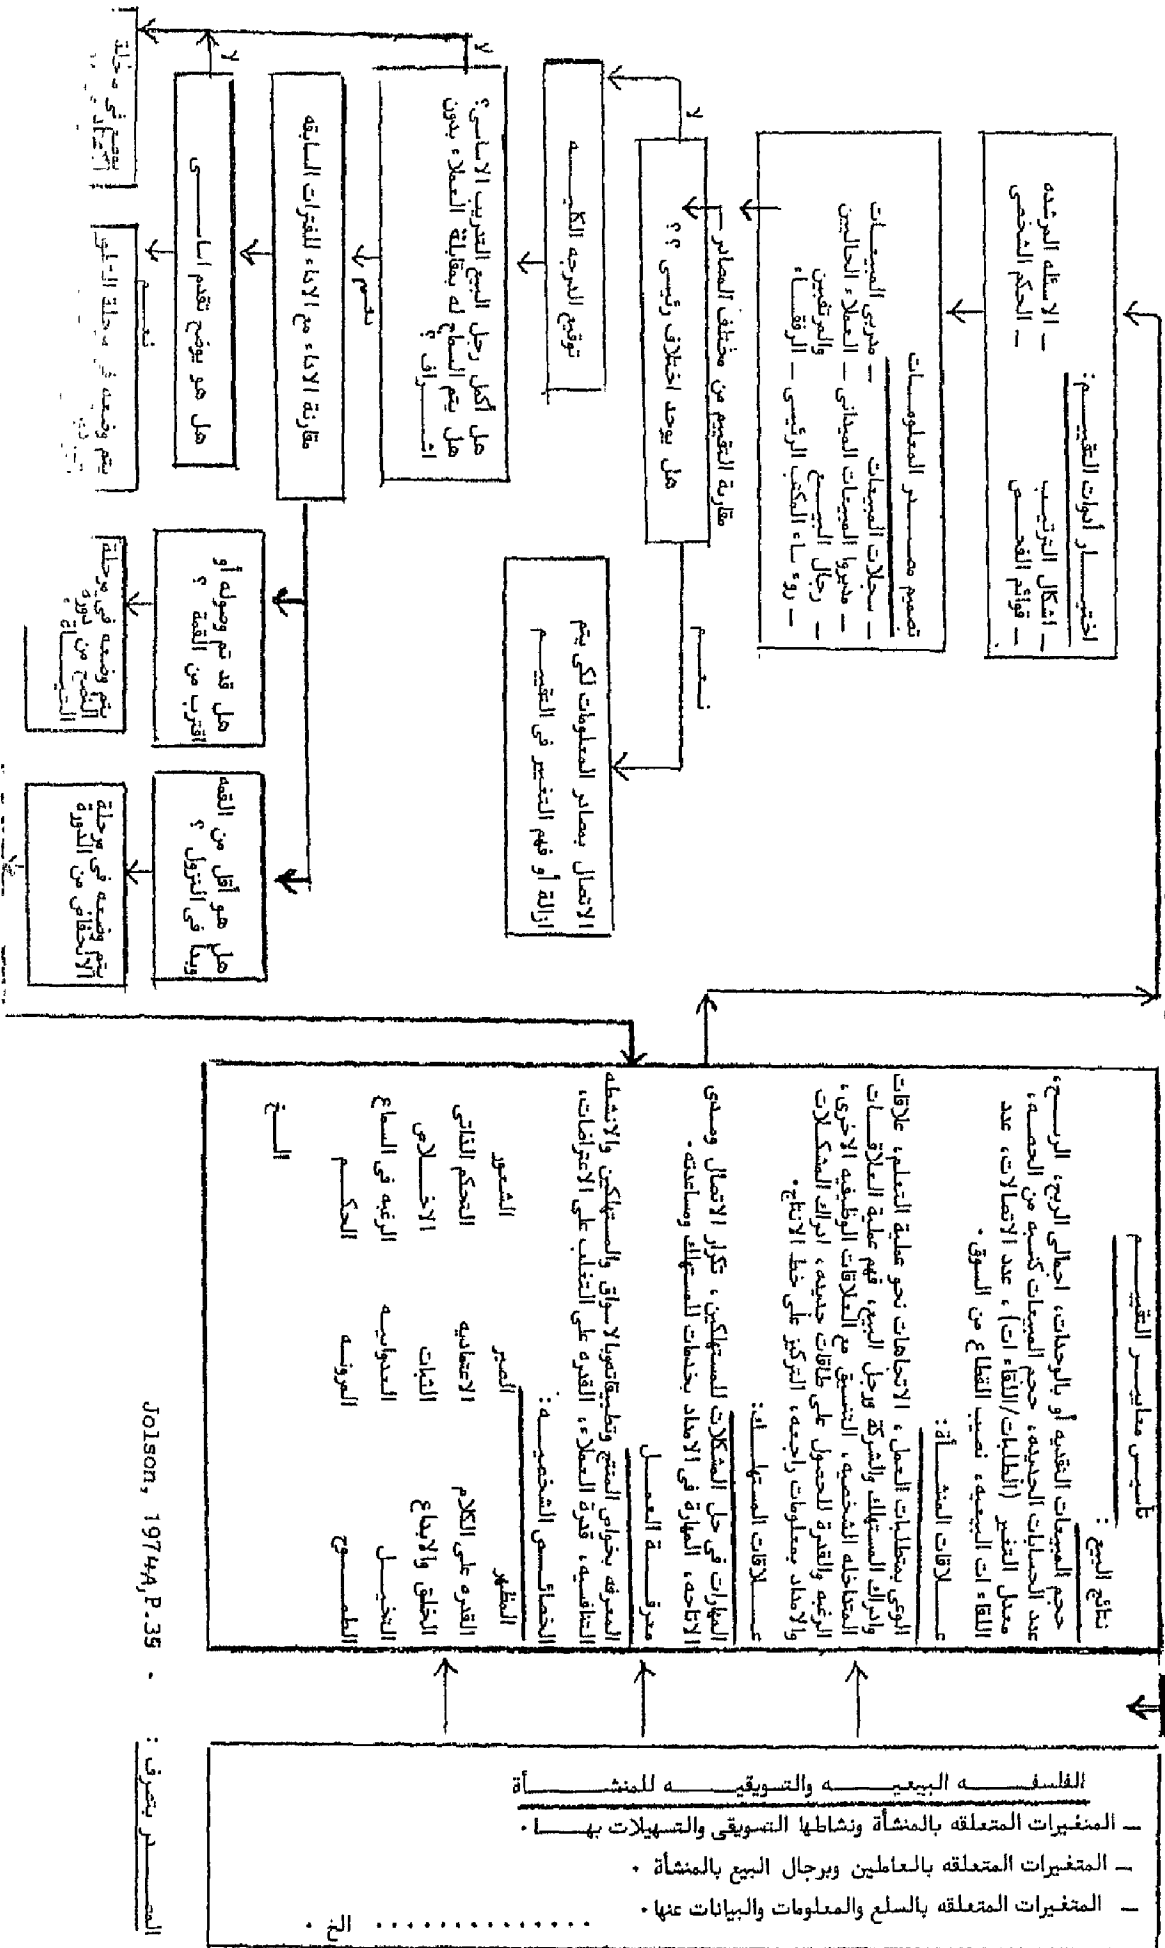 الفلسفـــه البيعيــــه والتسويقيـــه للمنشـــأة
ــ المتغيرات المتعلقه بالمنشأة ونشاطها التسويقى والتسهيلات بهــا ٠
ــ المتغيرات المتعلقه بالعاملين وبرجال البيع بالمنشأة ٠
ــ المتغيرات المتعلقه بالسلع والمعلومات والبيانات عنها ٠
٠٠٠٠٠٠٠٠٠٠٠٠ الخ ٠
تأسيس معاييــر التقييــــم
نتائج البيع :
حجم المبيعات النقديه أو بالوحدات، اجمالى الربح، الربــح،
عدد الحسابات الجديده، حجم المبيعات كنسبه من الحصه،
معدل التغير (الطلبات/اللقاءات) ، عدد الاتصالات، عدد
اللقاءات البيعيه، نصيب القطاع من السوق ٠
عــلاقات المنشــأة:
الوعى بمتطلبات العمل ، الاتجاهات نحو عملية التعلم، علاقات
وادراك المستهلك والشركة ورجل البيع، فهم عملية العلاقــات
المتداخله الشخصيه، التنسيق مع العلاقات الوظيفيه الاخرى،
الرغبه والقدرة للحصول على طاقات جديده، ادراك المشكــلات
والامداد بمعلومات راجعه، التركيز على خط الانتاج ٠
عــلاقات المستهــلك:
المهارات فى حل المشكلات للمستهلكين، تكرار الاتصال ومــدى
الاتاحه، المهارة فى الامداد بخدمات للمستهلك ومساعدته ٠
معرفــــة العمـــل
المعرفه بخواص المنتج وتطبيقاته وبالاسواق والمستهلكين والانشطه
التنافسيه، قدرة العملاء، القدره على التغلب على الاعتراضات،
الخصائــص الشخصيـــه:
المظهر الصبر الشعور
القدره على الكلام الاعتماديه التحكم الذاتى
الخلق والابداع الثبات الاخــلاص
التخيــل العدوانيــه الرغبه فى السماع
الطمــوح المرونــه الحكــم
الــخ
اختيـــار أدوات التقييـــم:
ــ اشكال الترتيب ــ الاسئله المرشده
ــ قوائم الفحــص ــ الحكم الشخصى
تصميم مصـــدر المعلومـــات
ــ سجلات المبيعات ــ مدربى المبيعــات
ــ مديروا المبيعات الميدانى ــ العملاء الحاليين
ــ رجال البيــع والمرتقبين
ــ رؤساء المكتب الرئيسى ــ الرفقــاء
مقارنة التقييم من مختلف المصادر
هل يوجد اختلاف رئيسى ؟؟
لا
نـعــم
الاتصال بمصادر المعلومات لكى يتم
ازالة أو فهم التغيير فى التقييـــم
توقيع الدرجه الكليــــه
هل أكمل رجل البيع التدريب الاساسى؟
هل يتم السماح له بمقابلة العملاء بدون
اشـــراف ؟
لا
نعــم
مقارنة الاداء مع الاداء للفترات السابقه
هل هو يوضح تقدم اساســـى
لا
نعـــم
هل قد تم وصوله أو
اقترب من القمة ؟
هل هو أقل من القمه
وبدأ فى النزول ؟
يتم وضعه فى مرحلة
يتم وضعه فى مرحلة
النضج من دورة
يتم وضعه فى مرحلة
الانخفاض من الدورة
المصـــدر بتصرف : Jolson, 1974A,P.35 ٠